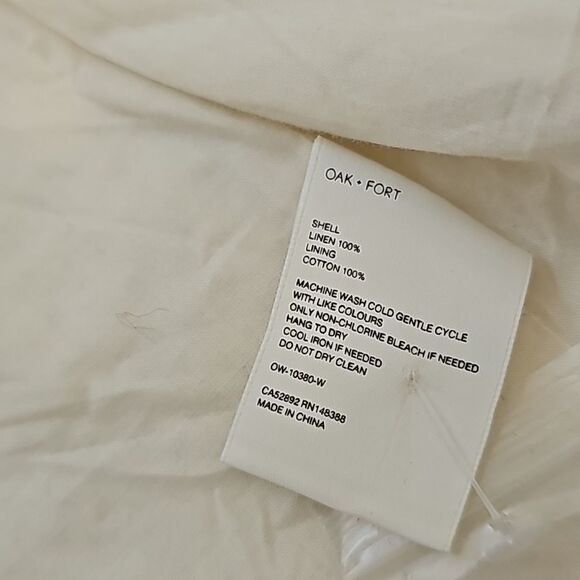 OAK + FORT
SHELL
LINEN 100%
LINING
COTTON 100%
MACHINE WASH COLD GENTLE CYCLE
WITH LIKE COLOURS
ONLY NON-CHLORINE BLEACH IF NEEDED
HANG TO DRY
COOL IRON IF NEEDED
DO NOT DRY CLEAN
OW-10380-W
CA52892 RN148388
MADE IN CHINA